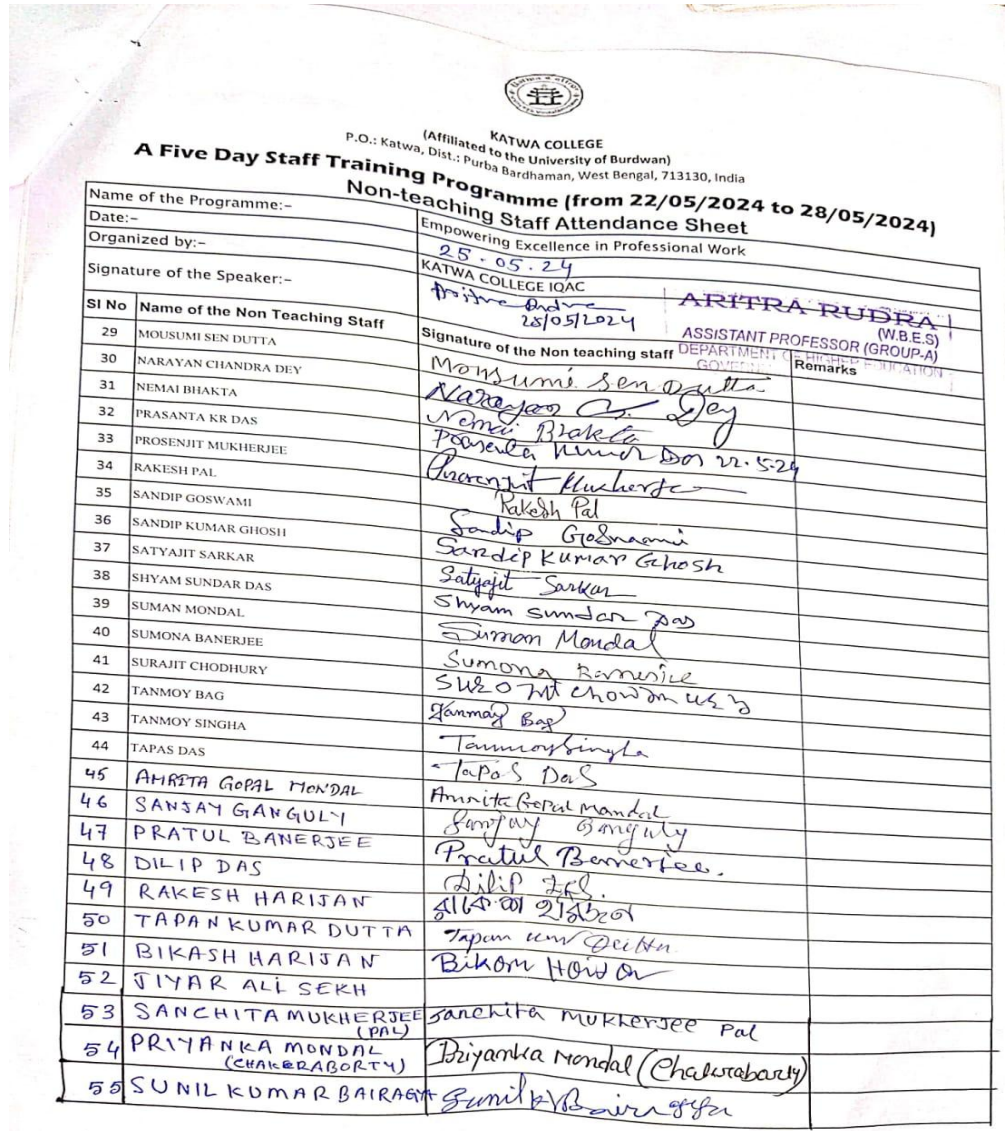 KATWA COLLEGE
(Affiliated to the University of Burdwan)
P.O.: Katwa, Dist.: Purba Bardhaman, West Bengal, 713130, India
A Five Day Staff Training Programme (from 22/05/2024 to 28/05/2024)
Non-teaching Staff Attendance Sheet
Name of the Programme:- Empowering Excellence in Professional Work
Date:- 25.05.24
Organized by:- KATWA COLLEGE IQAC
Signature of the Speaker:-
28/05/2024
ARITRA RUDRA
(W.B.E.S)
ASSISTANT PROFESSOR (GROUP-A)
DEPARTMENT OF HIGHER EDUCATION
Sl No Name of the Non Teaching Staff Signature of the Non teaching staff Remarks
29 MOUSUMI SEN DUTTA Mousumi Sen Dutta
30 NARAYAN CHANDRA DEY Narayan Ch. Dey
31 NEMAI BHAKTA Nemai Bhakta
32 PRASANTA KR DAS Prasanta Kumar Das 22.5.24
33 PROSENJIT MUKHERJEE Prosenjit Mukherjee
34 RAKESH PAL Rakesh Pal
35 SANDIP GOSWAMI Sandip Goswami
36 SANDIP KUMAR GHOSH Sandip Kumar Ghosh
37 SATYAJIT SARKAR Satyajit Sarkar
38 SHYAM SUNDAR DAS Shyam Sundar Das
39 SUMAN MONDAL Suman Mondal
40 SUMONA BANERJEE Sumona Banerjee
41 SURAJIT CHODHURY
42 TANMOY BAG Tanmay Bag
43 TANMOY SINGHA Tanmoy Singha
44 TAPAS DAS Tapas Das
45 AMRITA GOPAL MONDAL Amrita Gopal Mandal
46 SANJAY GANGULY Sanjay Ganguly
47 PRATUL BANERJEE Pratul Banerjee.
48 DILIP DAS Dilip
49 RAKESH HARIJAN
50 TAPAN KUMAR DUTTA Tapan
51 BIKASH HARIJAN
52 JIYAR ALI SEKH
53 SANCHITA MUKHERJEE Sanchita Mukherjee Pal
(PAL)
54 PRIYANKA MONDAL Priyanka Mondal (Chakraborty)
(CHAKERABORTY)
55 SUNIL KUMAR BAIRAGYA Sunil